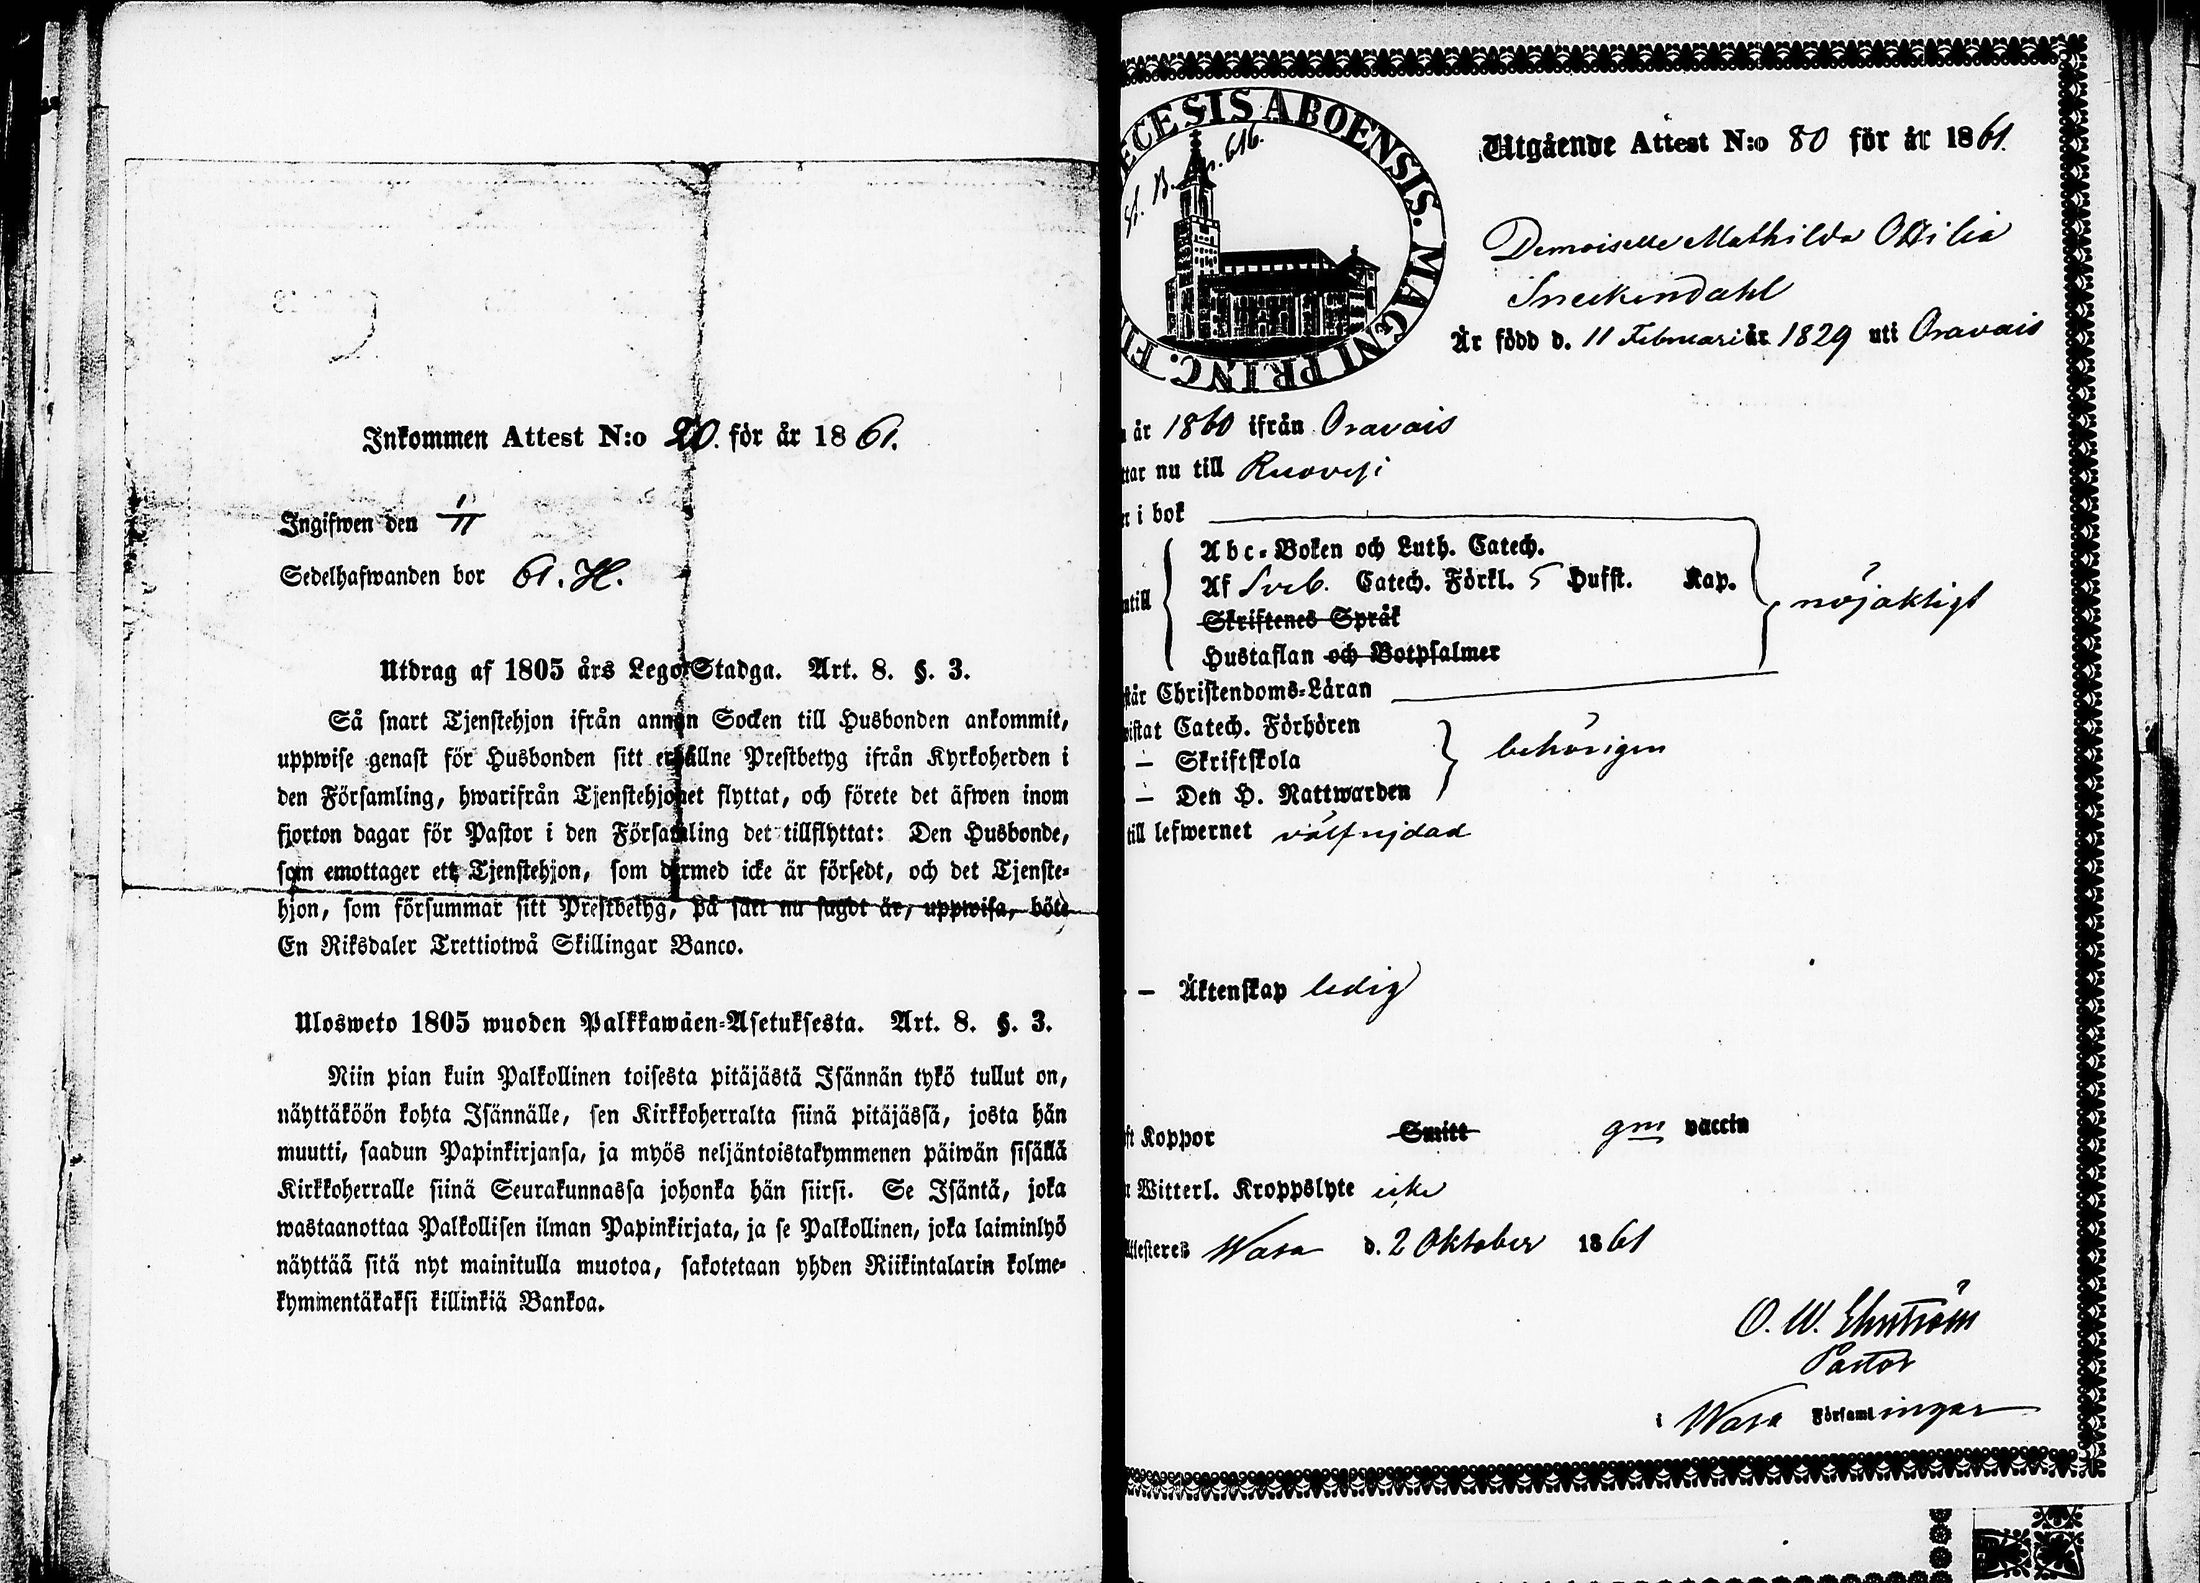 Inkommen Attest N:o 20. för år 1861.
Ingifwen den 1/11
Sedelhafwanden bor 61. H.
Utdrag af 1805 års Lego-Stadga. Art. 8. §. 3.
Så snart Tjenstehjon ifrån annan Socken till Husbonden ankommit,
uppwise genast för Husbonden sitt erhållne Prestbetyg ifrån Kyrkoherden i
den Församling, hwarifrån Tjenstehjonet flyttat, och förete det äfwen inom
fjorton dagar för Pastor i den Församling det tillflyttat: Den Husbonde,
som emottager ett Tjenstehjon, som dermed icke är försedt, och det Tjenste-
hjon, som försummar sitt Prestbetyg, på sätt nu sagdt är, uppwisa, böte
En Riksdaler Trettiotwå Skillingar Banco.
Ulosweto 1805 wuoden Palkkawäen-Asetuksesta. Art. 8. §. 3.
Niin pian kuin Palkollinen toisesta pitäjästä Isännän tykö tullut on,
näyttäköön kohta Isännälle, sen Kirkkoherralta siinä pitäjässä, josta hän
muutti, saadun Papinkirjansa, ja myös neljäntoistakymmenen päiwän sisällä
Kirkkoherralle siinä Seurakunnassa johonka hän siirsi. Se Isäntä, joka
wastaanottaa Palkollisen ilman Papinkirjata, ja se Palkollinen, joka laiminlyö
näyttää sitä nyt mainitulla muotoa, sakotetaan yhden Riikintalarin kolme-
kymmentäkaksi killinkiä Bankoa.
ECESIS ABOENSIS. MAGNI PRINC. FI
616.
Utgående Attest N:o 80 för år 1861.
Demoiselle Mathilda Ottilia
Sneckendahl
Är född d. 11 Februari år 1829 uti Oravais
år 1860 ifrån Oravais
ttar nu till Ruovesi
i bok
Abc-Boken och Luth. Catech.
Af Sveb. Catech. Förkl. 5 Hufst. Kap.
ntill nöjaktigt
Skriftenes Språk
Hustaflan och Botpsalmer
står Christendoms-Läran
wistat Catech. Förhören
— Skriftskola behörigen
— Den H. Nattwarden
till lefwernet välfrejdad
— Äktenskap ledig
ft Koppor Smitt gm vaccin
Witterl. Kroppslyte icke
Attesteres Wasa d. 2 Oktober 1861
O. W. Ehrström
Pastor
i Wasa Församlingar